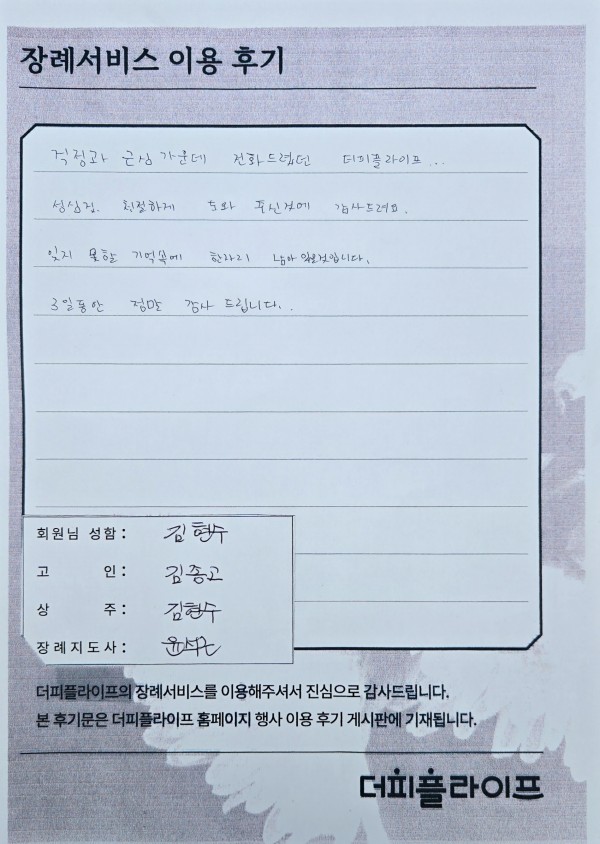 장례서비스 이용 후기
걱정과 근심 가운데 전화드렸던 더피플라이프...
성심껏. 친절하게 도와 주신것에 감사드려요.
잊지 못할 기억속에 한자리 남아 있을것입니다.
3일동안 정말 감사 드립니다..
회원님 성함 : 김현수
고 인 : 김종고
상 주 : 김현수
장례지도사 : 윤석근
더피플라이프의 장례서비스를 이용해주셔서 진심으로 감사드립니다.
본 후기문은 더피플라이프 홈페이지 행사 이용 후기 게시판에 기재됩니다.
더피플라이프